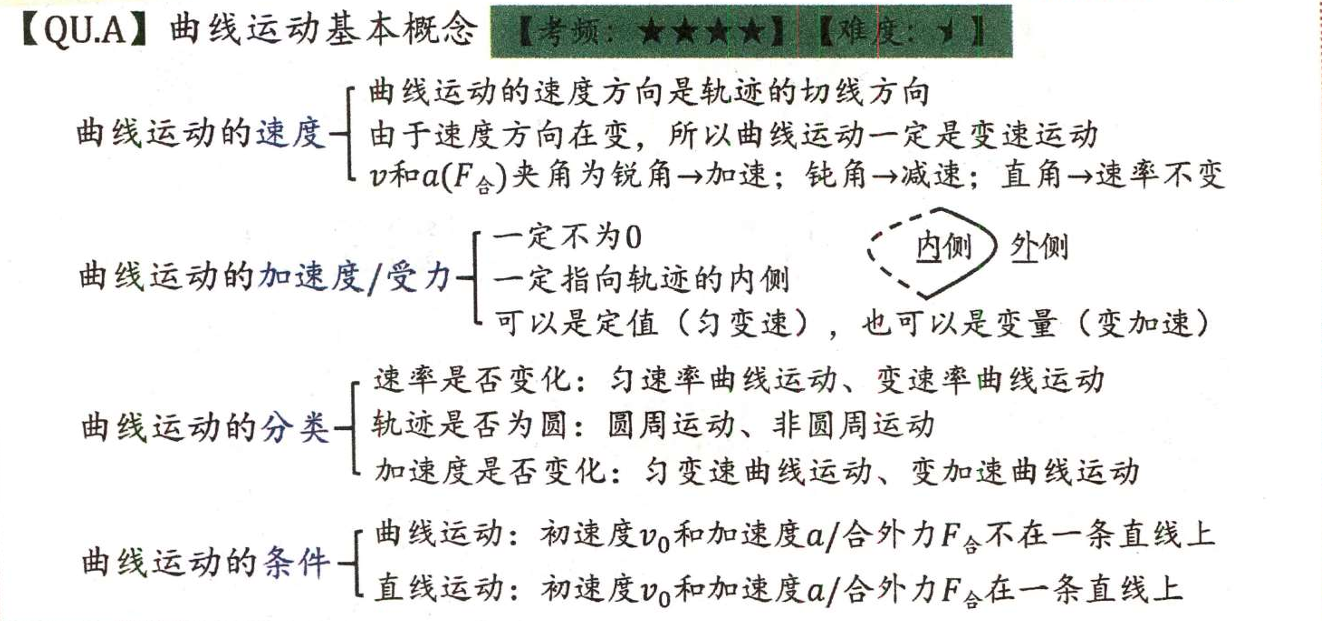 【QU.A】曲线运动基本概念 【考频：★★★★】【难度：★】
曲线运动的速度
曲线运动的速度方向是轨迹的切线方向
由于速度方向在变，所以曲线运动一定是变速运动
v和a(F合)夹角为锐角→加速；钝角→减速；直角→速率不变
曲线运动的加速度/受力
一定不为0
一定指向轨迹的内侧
可以是定值（匀变速），也可以是变量（变加速）
内侧 外侧
曲线运动的分类
速率是否变化：匀速率曲线运动、变速率曲线运动
轨迹是否为圆：圆周运动、非圆周运动
加速度是否变化：匀变速曲线运动、变加速曲线运动
曲线运动的条件
曲线运动：初速度v₀和加速度a/合外力F合不在一条直线上
直线运动：初速度v₀和加速度a/合外力F合在一条直线上